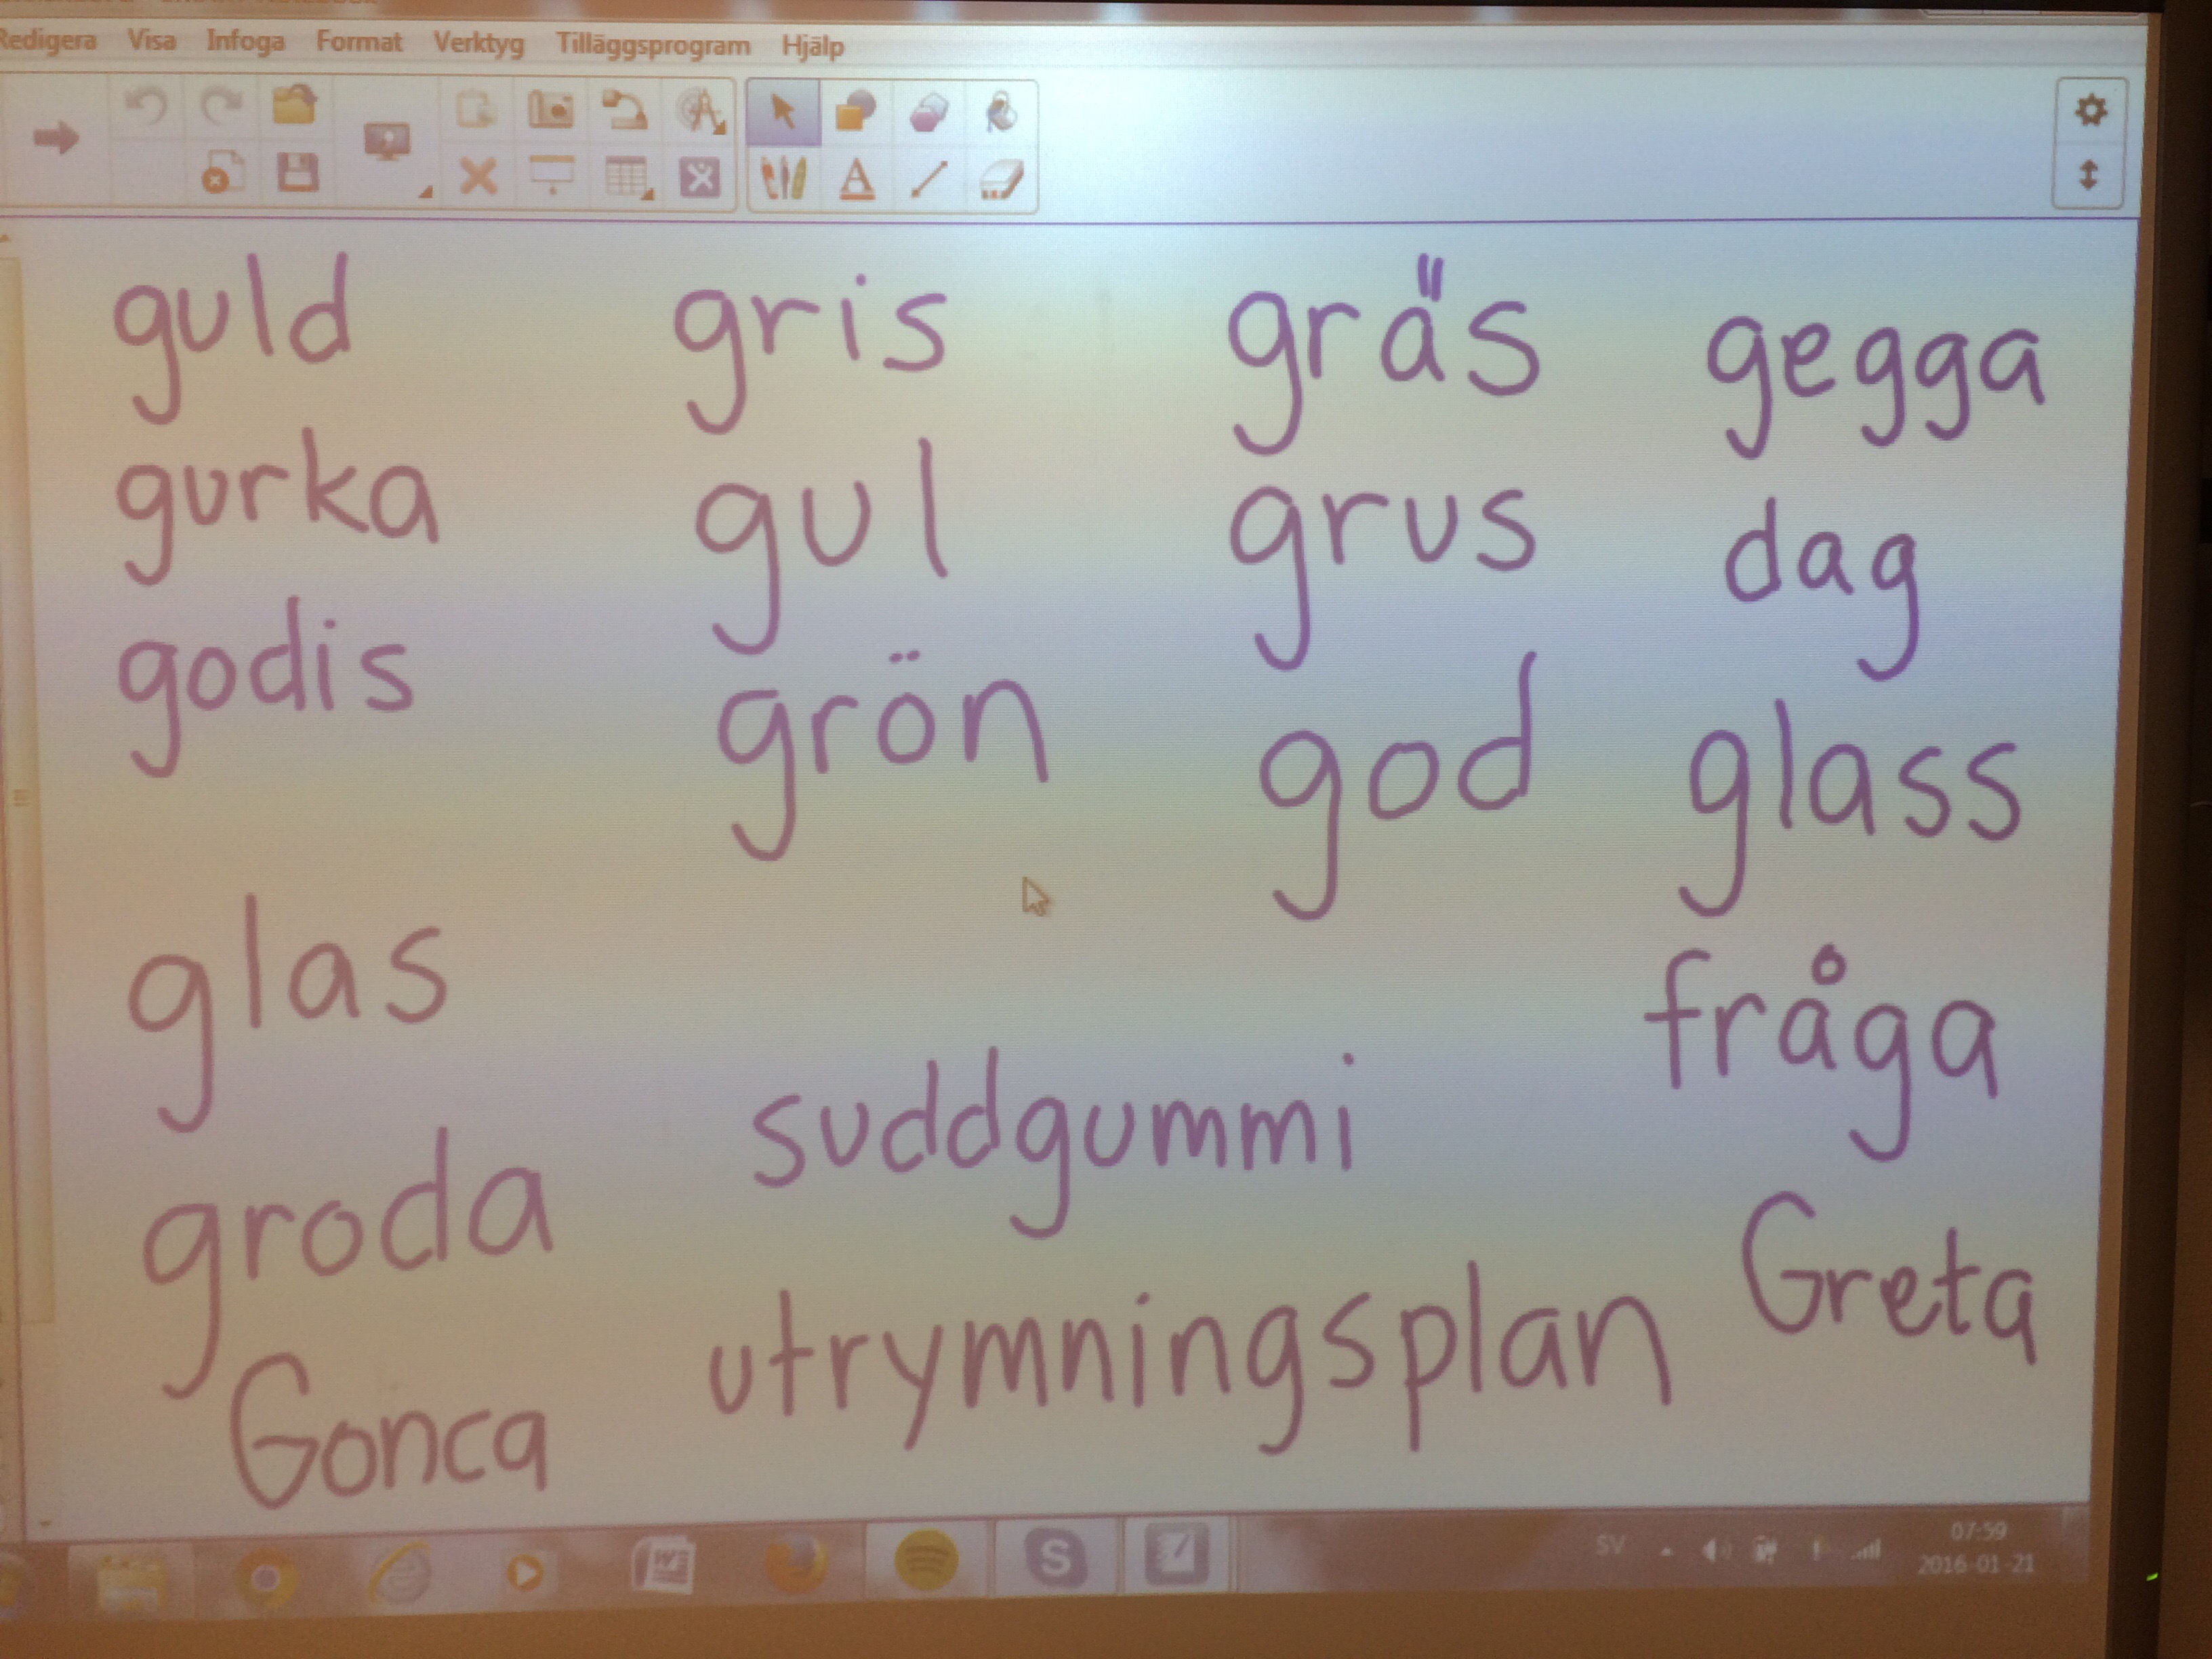 Redigera Visa Infoga Format Verktyg Tilläggsprogram Hjälp
guld gris gräs gegga
gurka gul grus dag
godis grön god glass
glas fråga
suddgummi
groda Greta
utrymningsplan
Gonca
SV 07:59
2016-01-21